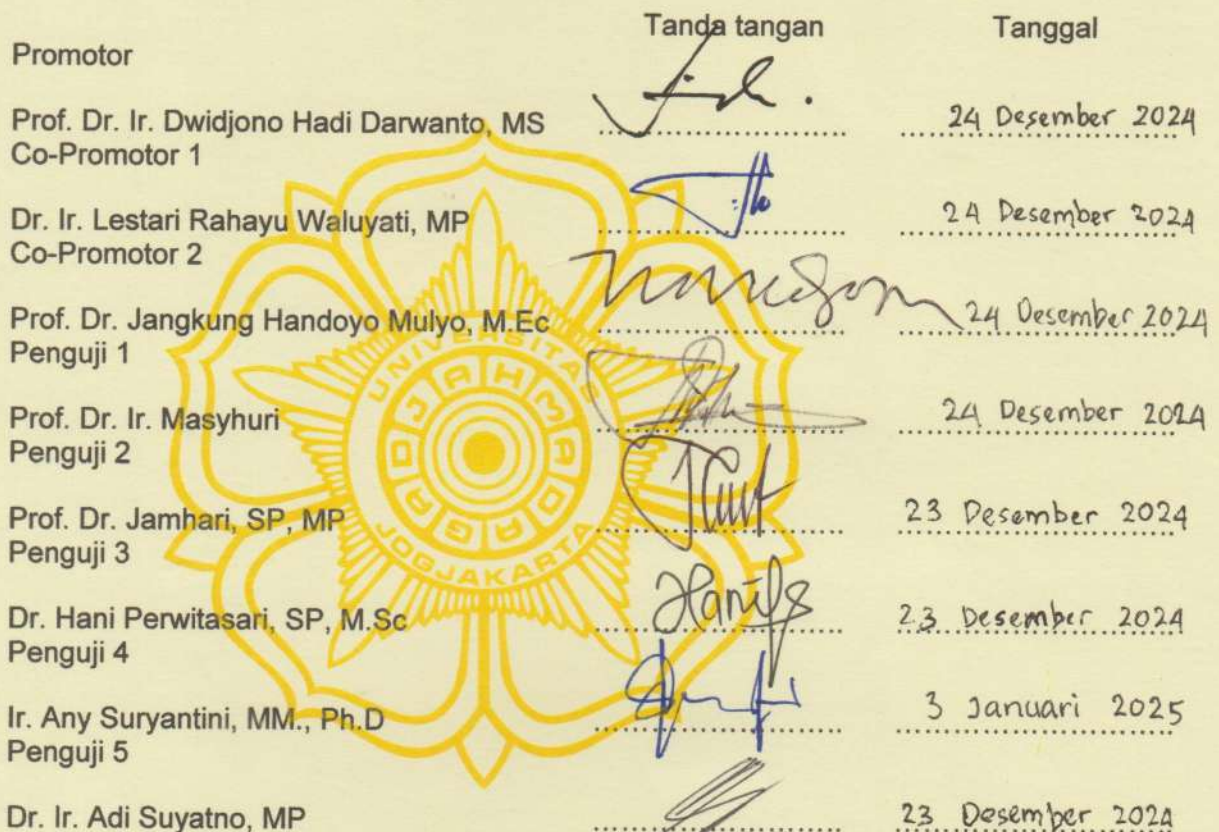 Tanda tangan Tanggal
Promotor
Prof. Dr. Ir. Dwidjono Hadi Darwanto, MS 24 Desember 2024
Co-Promotor 1
Dr. Ir. Lestari Rahayu Waluyati, MP 24 Desember 2024
Co-Promotor 2
Prof. Dr. Jangkung Handoyo Mulyo, M.Ec 24 Desember 2024
Penguji 1
Prof. Dr. Ir. Masyhuri 24 Desember 2024
Penguji 2
Prof. Dr. Jamhari, SP, MP 23 Desember 2024
Penguji 3
Dr. Hani Perwitasari, SP, M.Sc 23 Desember 2024
Penguji 4
Ir. Any Suryantini, MM., Ph.D 3 Januari 2025
Penguji 5
Dr. Ir. Adi Suyatno, MP 23 Desember 2024
UNIVERSITAS
GADJAH MADA
JOGJAKARTA